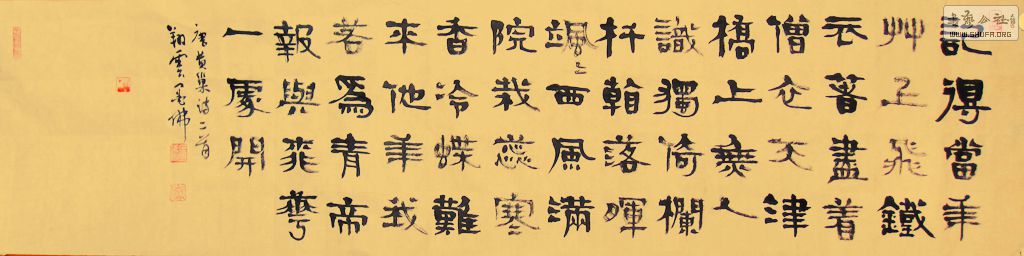 記得當年
艸上飛鐵
衣著盡着
僧衣天津
橋上無人
識獨倚欄
杆落暉
颯々西風滿
院栽蕊寒
香冷蝶難
來他年我
若爲青帝
報與
一處開
唐黃巢詩二首
翔雲
书法公社
WWW.SHUFA.ORG